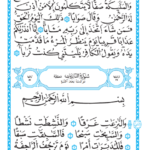 وَالْمَلٰٓئِكَةُ صَفًّا لَا يَتَكَلَّمُونَ اِلَّا مَنْ اَذِنَ
لَهُ الرَّحْمٰنُ وَقَالَ صَوَابًا ذٰلِكَ الْيَوْمُ الْحَقُّ
فَمَنْ شَٓاءَ اتَّخَذَ اِلٰى رَبِّهٖ مَاٰبًا اِنَّٓا اَنْذَرْنَاكُمْ
عَذَابًا قَرِيبًا يَوْمَ يَنْظُرُ الْمَرْءُ مَا قَدَّمَتْ
يَدَاهُ وَيَقُولُ الْكَافِرُ يَا لَيْتَنِي كُنْتُ تُرَابًا
سُورَةُ النَّازِعَاتِ
بِسْمِ اللّٰهِ الرَّحْمٰنِ الرَّحِيمِ
وَالنَّازِعَاتِ غَرْقًا وَالنَّاشِطَاتِ نَشْطًا
وَالسَّابِحَاتِ سَبْحًا فَالسَّابِقَاتِ سَبْقًا
فَالْمُدَبِّرَاتِ اَمْرًا يَوْمَ تَرْجُفُ الرَّاجِفَةُ